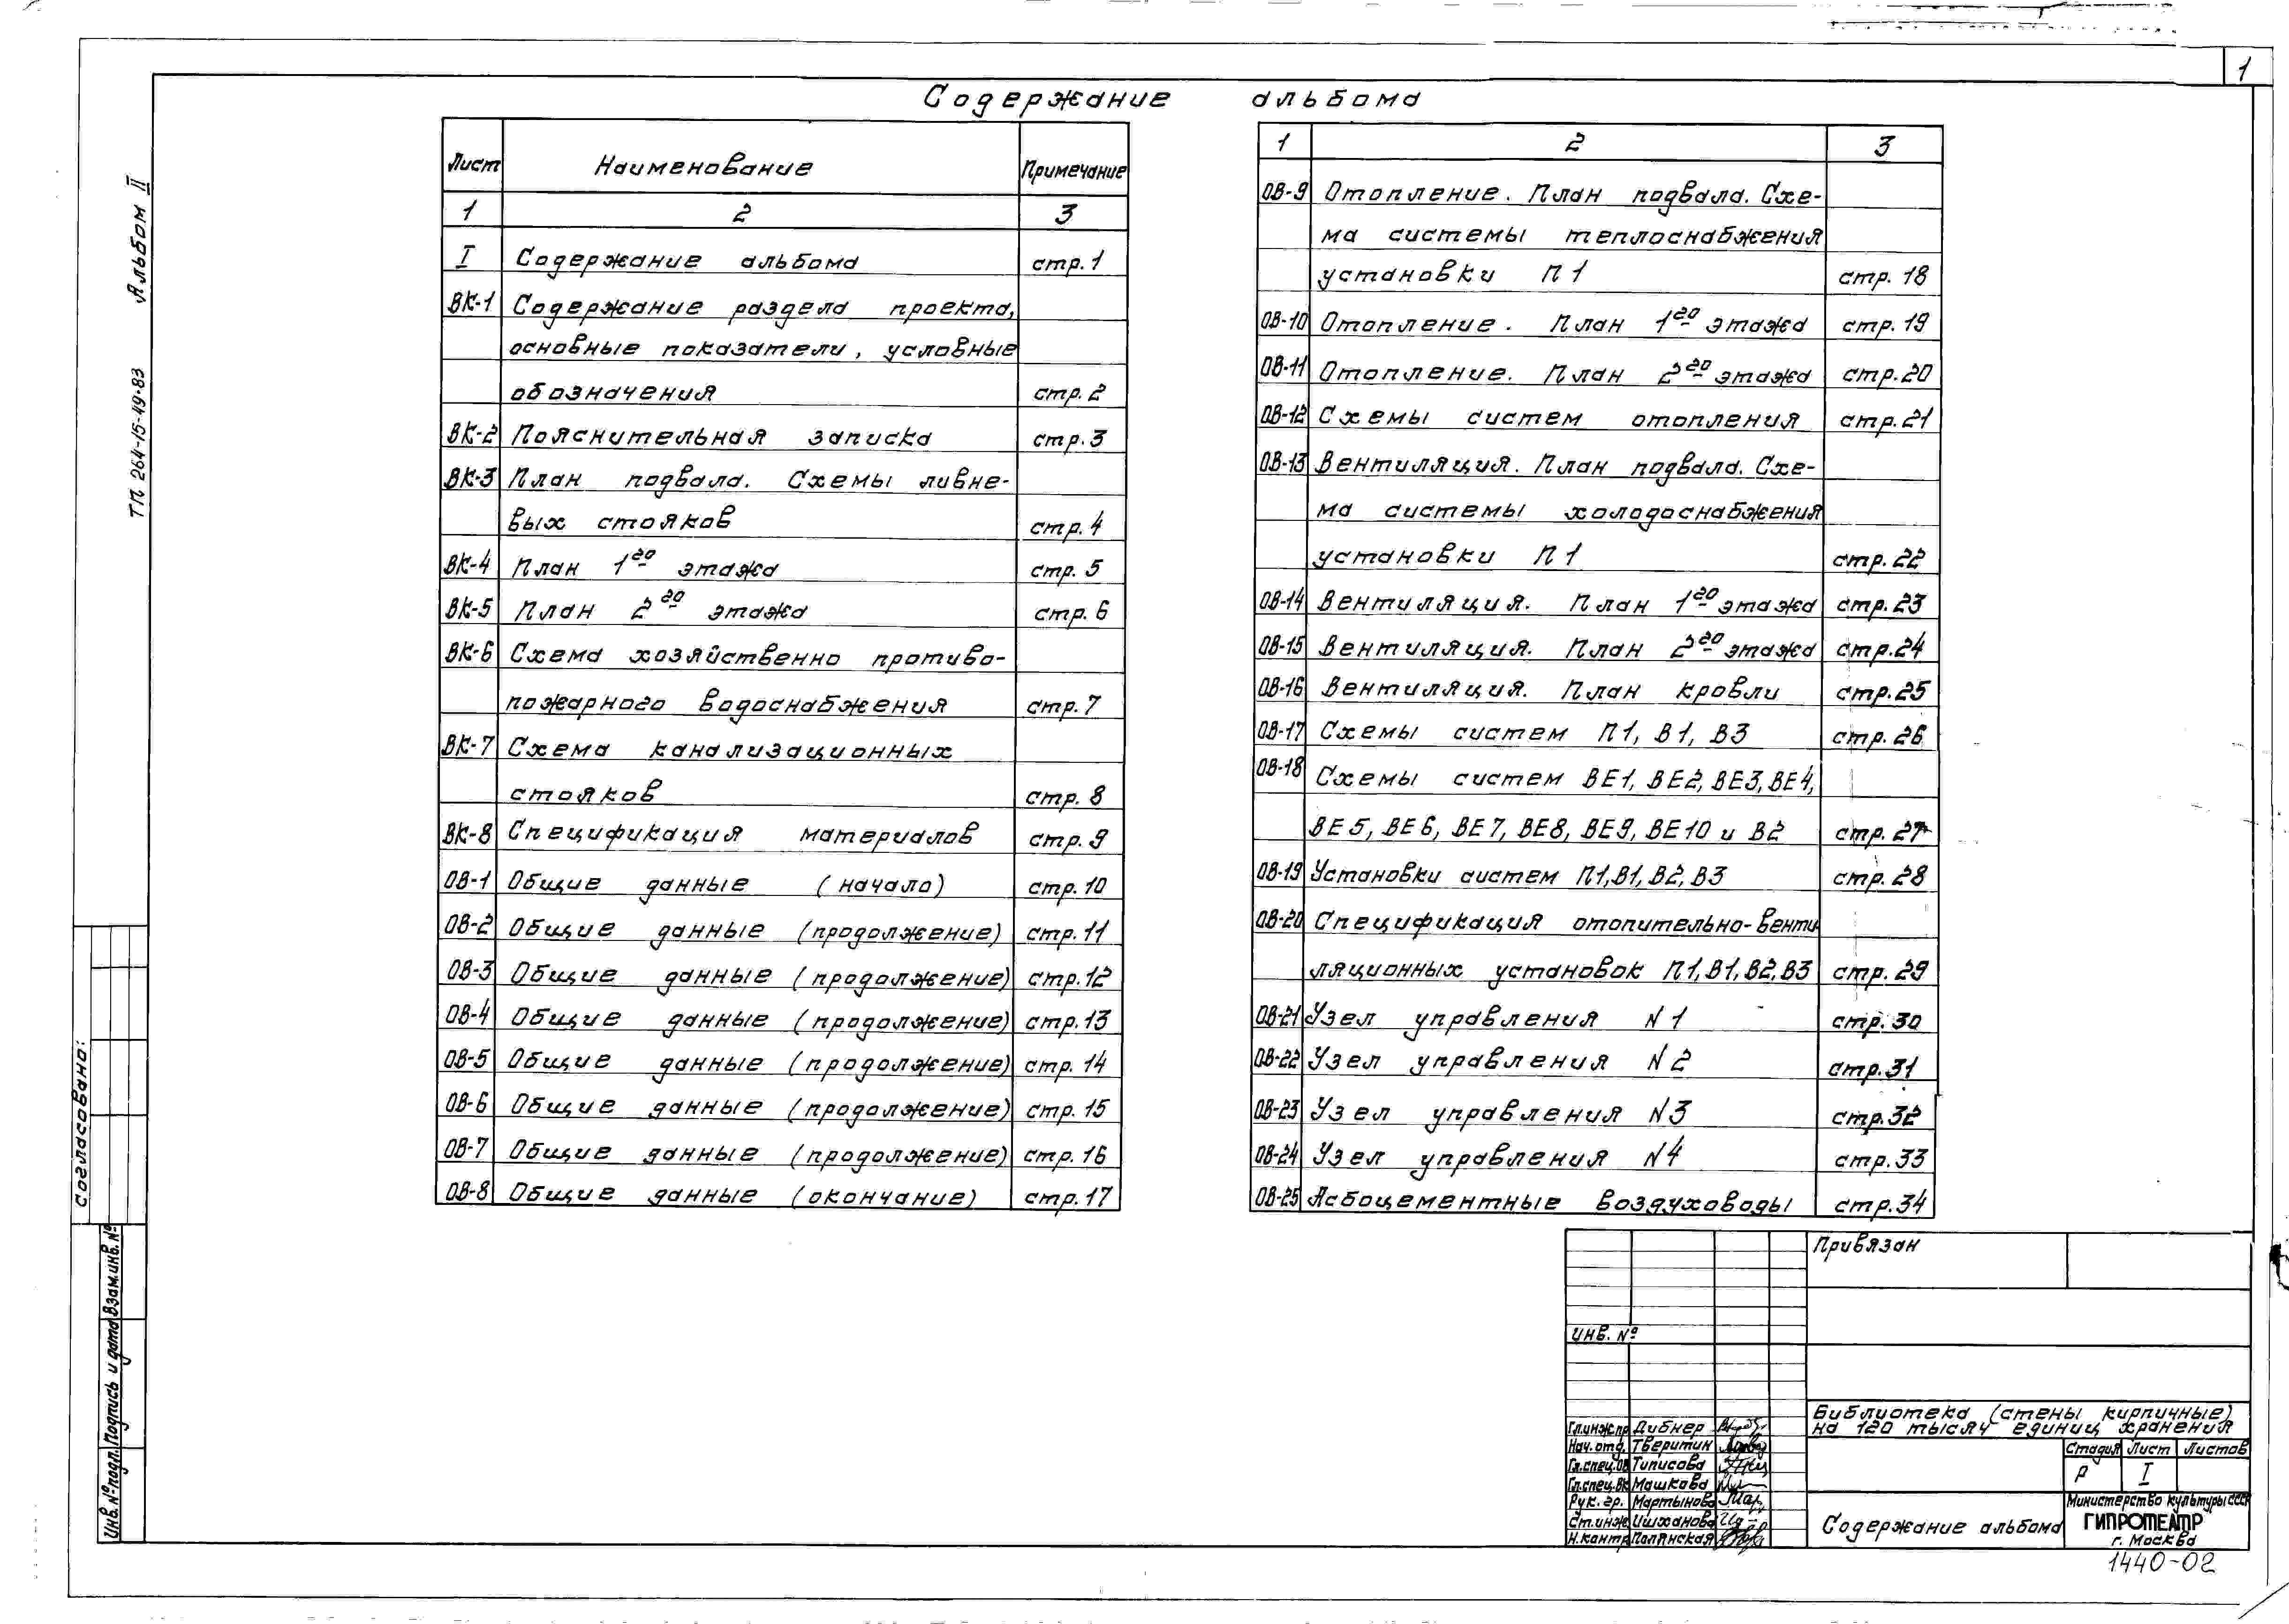 1
Содержание альбома
Альбом II
ТП 264-15-49.83
Лист Наименование Примечание
1 2 3
I Содержание альбома стр. 1
ВК-1 Содержание раздела проекта,
основные показатели, условные
обозначения стр. 2
ВК-2 Пояснительная записка стр. 3
ВК-3 План подвала. Схемы ливне-
вых стояков стр. 4
ВК-4 План 1го этажа стр. 5
ВК-5 План 2го этажа стр. 6
ВК-6 Схема хозяйственно противо-
пожарного водоснабжения стр. 7
ВК-7 Схема канализационных
стояков стр. 8
ВК-8 Спецификация материалов стр. 9
ОВ-1 Общие данные (начало) стр. 10
ОВ-2 Общие данные (продолжение) стр. 11
ОВ-3 Общие данные (продолжение) стр. 12
ОВ-4 Общие данные (продолжение) стр. 13
ОВ-5 Общие данные (продолжение) стр. 14
ОВ-6 Общие данные (продолжение) стр. 15
ОВ-7 Общие данные (продолжение) стр. 16
ОВ-8 Общие данные (окончание) стр. 17
1 2 3
ОВ-9 Отопление. План подвала. Схе-
ма системы теплоснабжения
установки П1 стр. 18
ОВ-10 Отопление. План 1го этажа стр. 19
ОВ-11 Отопление. План 2го этажа стр. 20
ОВ-12 Схемы систем отопления стр. 21
ОВ-13 Вентиляция. План подвала. Схе-
ма системы холодоснабжения
установки П1 стр. 22
ОВ-14 Вентиляция. План 1го этажа стр. 23
ОВ-15 Вентиляция. План 2го этажа стр. 24
ОВ-16 Вентиляция. План кровли стр. 25
ОВ-17 Схемы систем П1, В1, В3 стр. 26
ОВ-18 Схемы систем ВЕ1, ВЕ2, ВЕ3, ВЕ4,
ВЕ5, ВЕ6, ВЕ7, ВЕ8, ВЕ9, ВЕ10 и В2 стр. 27
ОВ-19 Установки систем П1, В1, В2, В3 стр. 28
ОВ-20 Спецификация отопительно-венти
ляционных установок П1, В1, В2, В3 стр. 29
ОВ-21 Узел управления N 1 стр. 30
ОВ-22 Узел управления N 2 стр. 31
ОВ-23 Узел управления N3 стр. 32
ОВ-24 Узел управления N4 стр. 33
ОВ-25 Асбоцементные воздуховоды стр. 34
Согласовано:
Инв. № подл. Подпись и дата Взам.инв.№
Привязан
инв. №
Библиотека (стены кирпичные)
на 120 тысяч единиц хранения
Стадия Лист Листов
Р I
Гл.инж.пр Дибнер
Нач. отд. Тверитин
Гл.спец.ОВ Типисова
Гл.спец.ВК Машкова
Рук. гр. Мартынова
Ст.инж. Ишханова
Н.контр. Полянская
Содержание альбома
Министерство культуры СССР
ГИПРОТЕАТР
г. Москва
1440-02